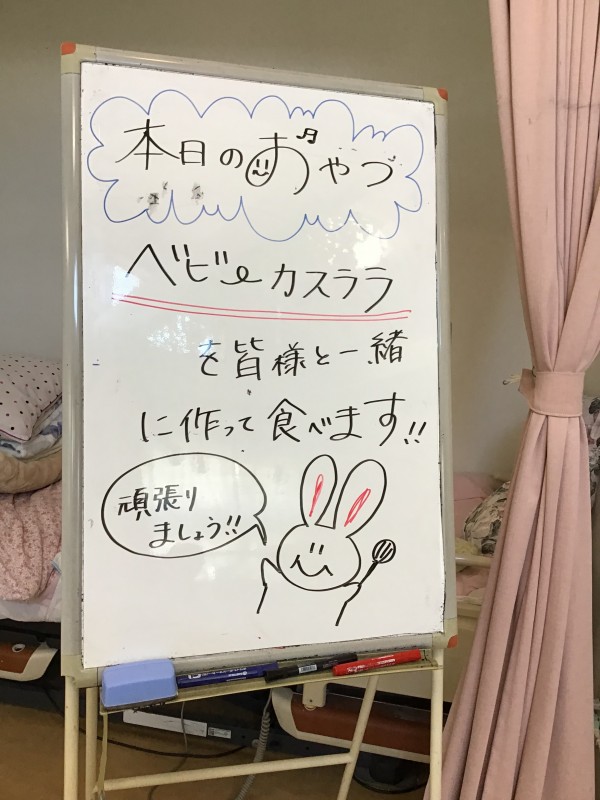 本日のおやつ
ベビーカスララ
を皆様と一緒
に作って食べます!!
頑張り
ましょう!!